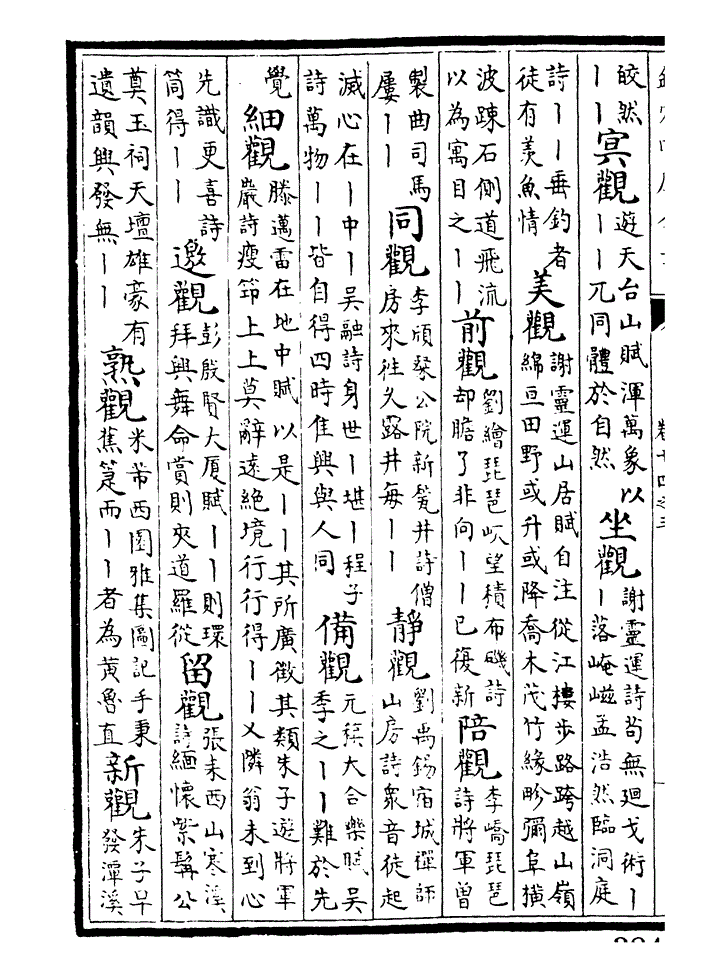 皎然
丨丨
冥觀
遊天台山賦渾萬象以
丨丨兀同體於自然
坐觀
謝靈運詩茍無迴戈術丨
丨落崦嵫孟浩然臨洞庭
詩丨丨垂釣者
徒有羡魚情
美觀
謝靈運山居賦自注從江樓步路跨越山嶺
綿亘田野或升或降喬木茂竹緣畛彌阜横
波踈石側道飛流
以為寓目之丨丨
前觀
劉繪琵琶峽望積布磯詩
却瞻了非向丨丨已復新
陪觀
李嶠琵琶
詩將軍曾
製曲司馬
屢丨丨
同觀
李頎琴公院新甃井詩僧
房來往久路井每丨丨
靜觀
劉禹錫宿城禪師
山房詩衆音徒起
滅心在丨中丨吳融詩身世丨堪丨程子
詩萬物丨丨皆自得四時佳興與人同
備觀
元稹大合樂賦吳
季之丨丨難於先
覺
細觀
滕邁雷在地中賦以是丨丨其所廣徵其類朱子遊將軍
巖詩瘦筇上上莫辭遠絶境行行得丨丨又隣翁未到心
先識更喜詩
筒得丨丨
邀觀
彭殷賢大厦賦丨丨則環
拜興舞命賞則夾道羅從
留觀
張耒西山寒溪
詩緬懷紫髯公
奠玉祠天壇雄豪有
遺韻興發無丨丨
熟觀
米芾西園雅集圖記手秉
蕉箑而丨丨者為黄魯直
新觀
朱子早
發潭溪